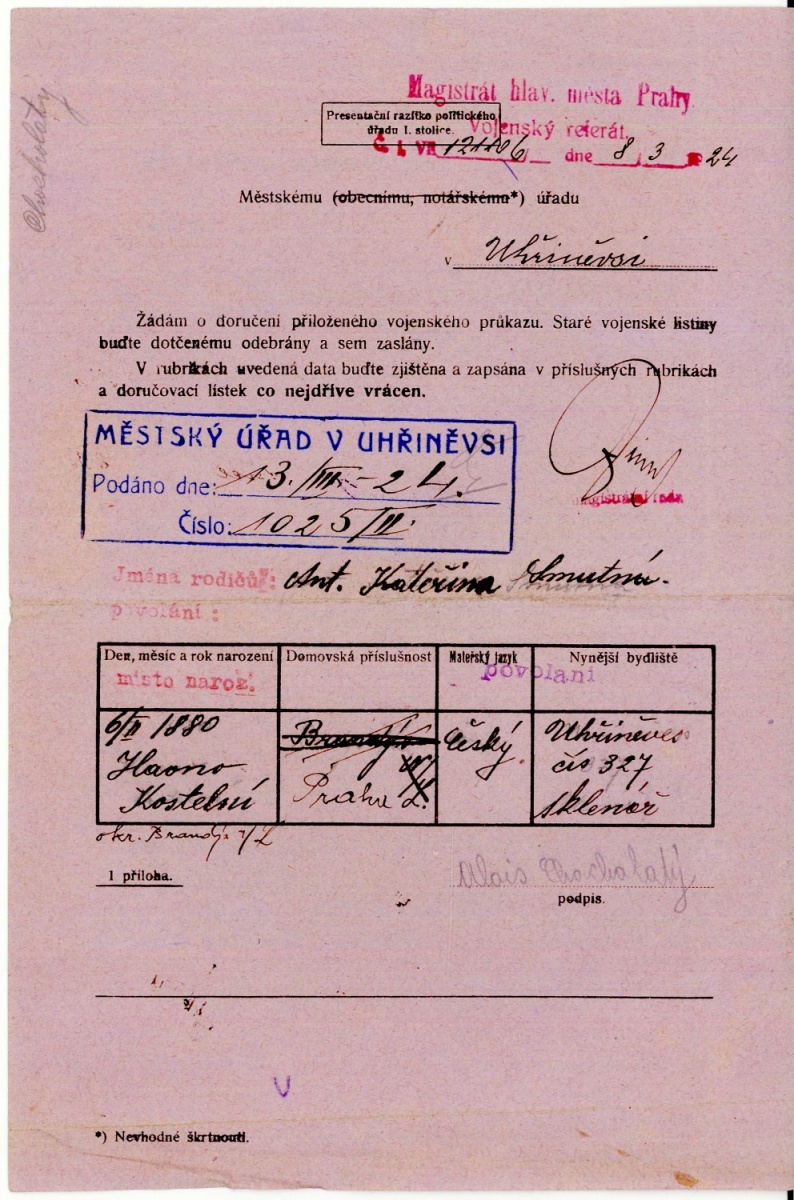 Chocholatý
Magistrát hlav. města Prahy.
Presentační razítko politického
úřadu I. stolice.
Vojenský referát.
Č. j. VII 6 dne 8 3 1924
Městskému (obecnímu, notářskému*) úřadu
v Uhříněvsi
Žádám o doručení přiloženého vojenského průkazu. Staré vojenské listiny
buďte dotčenému odebrány a sem zaslány.
V rubrikách uvedená data buďte zjištěna a zapsána v příslušných rubrikách
a doručovací lístek co nejdříve vrácen.
MĚSTSKÝ ÚŘAD V UHŘINĚVSI
Podáno dne: 13./III.-24.
Číslo: 1025/II.
magistrátní rada
Jména rodičů: Ant. Kateřina Smutná.
povolání:
Den, měsíc a rok narození Domovská příslušnost Mateřský jazyk Nynější bydliště
místo naroz. povolání
6/II 1880 Český Uhříněves
čís 327
Kostelní Praha sklenář
okr. Brandýs n/L
1 příloha.
Alois Chocholatý
podpis.
*) Nevhodné škrtnouti.